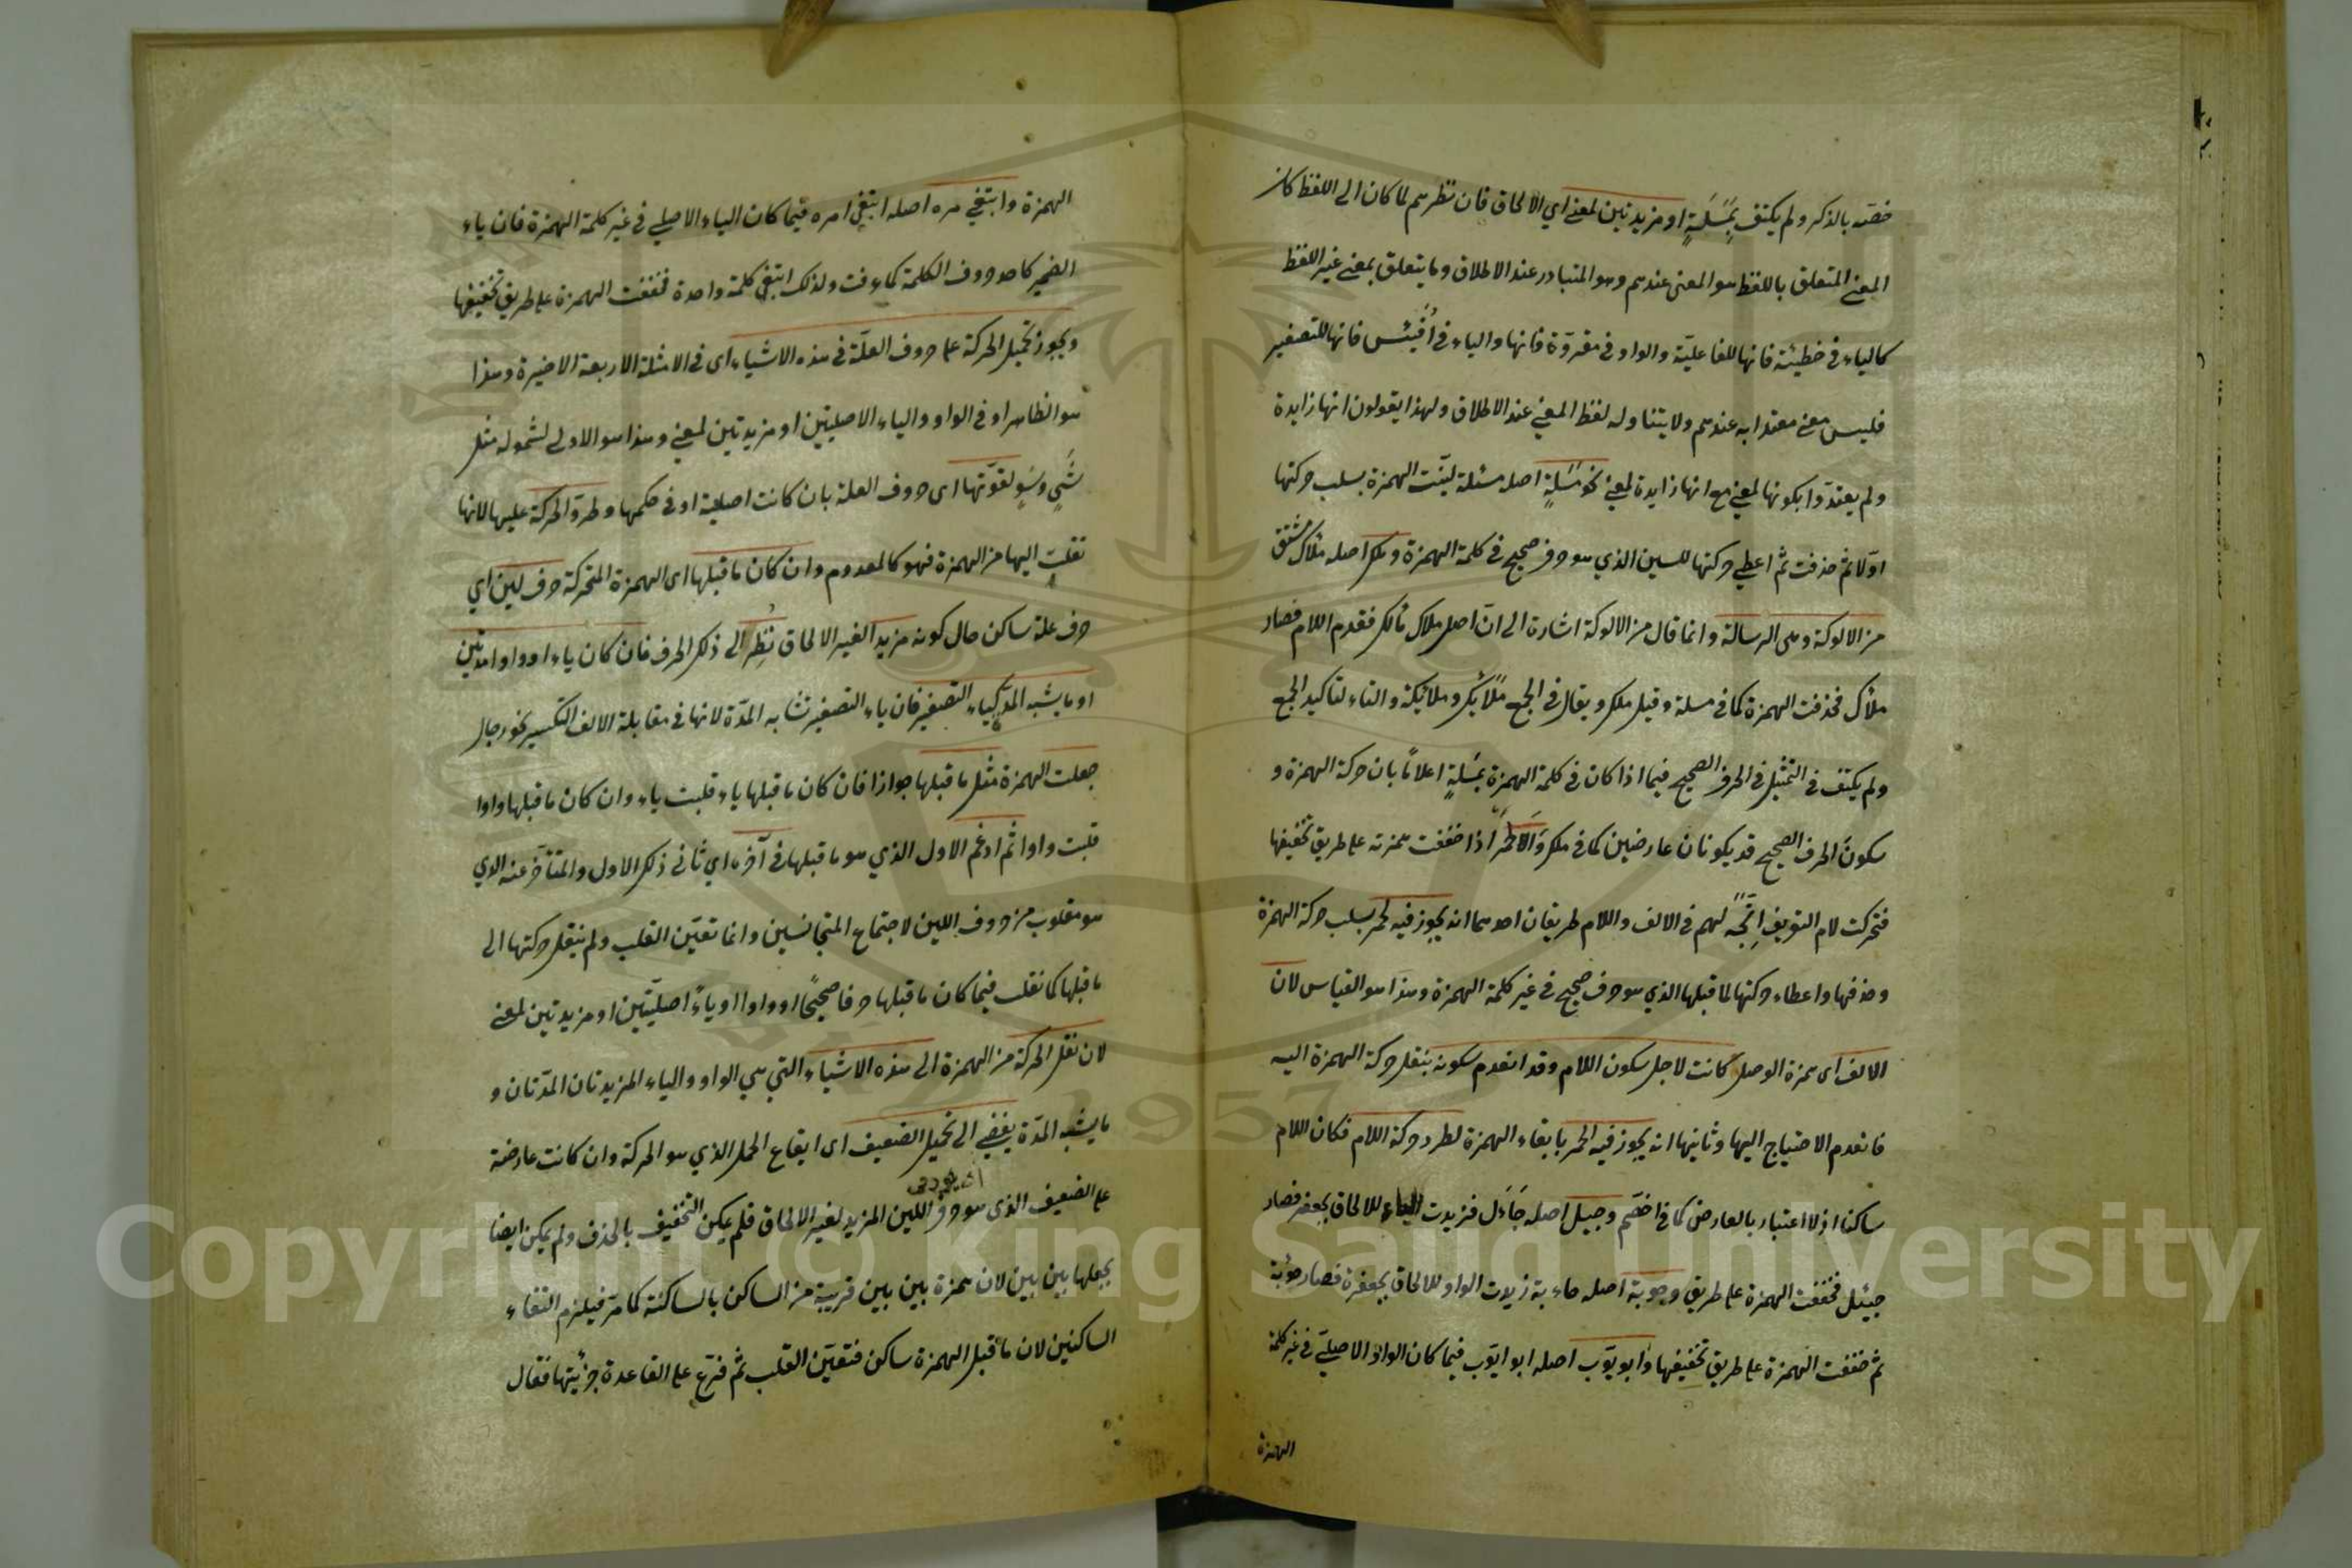 خصّه بالذكر ولم يكتف بمَسَلَةٍ او مزيدتين لمعنى اي الالحاق فان نظرهم لما كان الى اللفظ كان
المعنى المتعلق باللفظ هو المعنى عندهم وهو المتبادر عند الاطلاق وما يتعلق بمعنى غير اللفظ
كالياء في خطيئة فانها للفاعليّة والواو في مقروّة فانها والياء في اُفَيْئس فانها للتصغير
فليس معنى معتدا به عندهم ولا يتناوله لفظ المعنى عند الاطلاق ولهذا يقولون انها زايدة
ولم يعتدّوا بكونها لمعنى مع انها زايدة لمعنى نحو مَسَلَةٍ اصله مسئلة ليّنت الهمزة بسلب حركتها
اوّلا ثم حذفت ثم اعطي حركتها للسين الذي هو حرف صحيح في كلمة الهمزة وملك اصله ملأك مشتق
من الالوكة وهى الرسالة وانما قال من الالوكة اشارة الى انّ اصل ملاك مألك فقدم اللام فصار
ملأك فحذفت الهمزة كما في مسلة وقيل ملك ويقال في الجمع ملائك وملائكة والتاء لتاكيد الجمع
ولم يكتف في التمثيل في الحرف الصحيح فيما اذا كان في كلمة الهمزة بمَسَلَةٍ اعلامًا بان حركة الهمزة و
سكون الحرف الصحيح قد يكونان عارضين كما في ملك وَالَاحْمَر اذا خففت همزته على طريق تخفيفها
فتحركت لام التعريف اِتَّجَهَ لهم في الالف واللام طريقان احدهما انه يجوز فيه لحمر بسلب حركة الهمزة
وحذفها واعطاء حركتها لما قبلها الذي هو حرف صحيح في غير كلمة الهمزة وهذا هو القياس لان
الالف اى همزة الوصل كانت لاجل سكون اللام وقد انعدم سكونه بنقل حركة الهمزة اليه
فانعدم الاحتياج اليها وثانيها انه يجوز فيه الحمر بابقاء الهمزة لطرد حركة اللام فكان اللام
ساكنا اذ لا اعتبار بالعارض كما في اخصّم وجيل اصله جَاَءَل فزيدت الياء للالحاق بجعفر فصار
جيئل فخففت الهمزة على طريق وحوبة اصله حاءبة زيدت الواو للالحاق بجعفرة فصار حوءبة
ثم خففت الهمزة على طريق تخفيفها وابويّوب اصله ابو ايّوب فيما كان الواو الاصليّ في غير كلمة
الهمزة
الهمزة وابتغي مره اصله ابتغي امره فيما كان الياء الاصلي في غير كلمة الهمزة فان ياء
الضمير كاحد حروف الكلمة كما عرفت ولذلك ابتغي كلمة واحدة فخففت الهمزة على طريق تخفيفها
ويجوز تحميل الحركة على حروف العلّة في هذه الاشياء اى في الامثلة الاربعة الاخيرة وهذا
هو الظاهر او في الواو والياء الاصليتين او مزيدتين لمعنى وهذا هو الاولى لشموله مثل
شَيٍ وسَوٍ لقوّتها اى حروف العلة بان كانت اصلية او في حكمها وطروّ الحركة عليها لانها
نقلت اليها من الهمزة فهو كالمعدوم وان كان ما قبلها اى الهمزة المتحركة حرف لين اي
حرف علة ساكن حال كونه مزيدا لغير الالحاق نُظِر الى ذلك الحرف فان كان ياء او واوا مدتين
او ما يشبه المدّ كياء التصغير فان ياء التصغير تشابه المدّة لانها في مقابلة الالف التكسير نحو رجال
جعلت الهمزة مثل ما قبلها جوازا فان كان ما قبلها ياء قلبت ياء وان كان ما قبلها واوا
قلبت واوا ثم ادغم الاول الذي هو ما قبلها في آخره اي ثاني ذلك الاول والمتأخر عنه الذي
هو مقلوب من حروف اللين لاجتماع المتجانسين وانما تعيّن القلب ولم ينقل حركتها الى
ما قبلها كما نقلت فيما كان ما قبلها حرفا صحيحًا او واوا او ياءً اصليّتين او مزيدتين لمعنى
لان نقل الحركة من الهمزة الى هذه الاشياء التي هي الواو والياء المزيدتان المدّتان و
ما يشبه المدّة يفضي الى تحميل الضعيف اى ايقاع الحمل الذي هو الحركة وان كانت عارضة
على الضعيف الذى هو حرف اللين المزيد لغير الالحاق فلم يمكن التخفيف بالحذف ولم يمكن ايضا
بجعلها بين بين لان همزة بين بين قريبة من الساكن بالساكنة كما مرّ فيلزم التقاء
الساكنين لان ما قبل الهمزة ساكن فتعيّن القلب ثم فرّع على القاعدة جزئيتها فقال
Copyright © King Saud University
1957